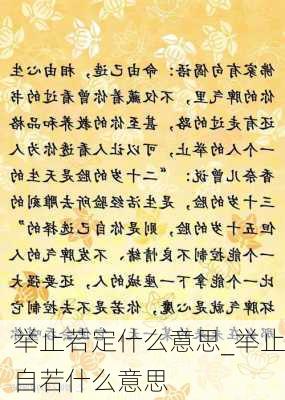 佛家有句偈语：命由己造，相由心生
你的脾气里，不仅藏着你曾看过的书
还有走过的路，甚至你的教养和品格
一个人的举止，可以让人看透你为人
香奈儿曾说：“二十岁的脸是天生的
三十岁的脸，是生活经验所去雕刻的
但五十岁的脸，则是你自己选择的”
一个能控制不良情绪、不发脾气的人
比一个能拿下一座城的人，还要强大
坏脾气就是心魔，你若是不去控制它
举止若定什么意思_举止
自若什么意思